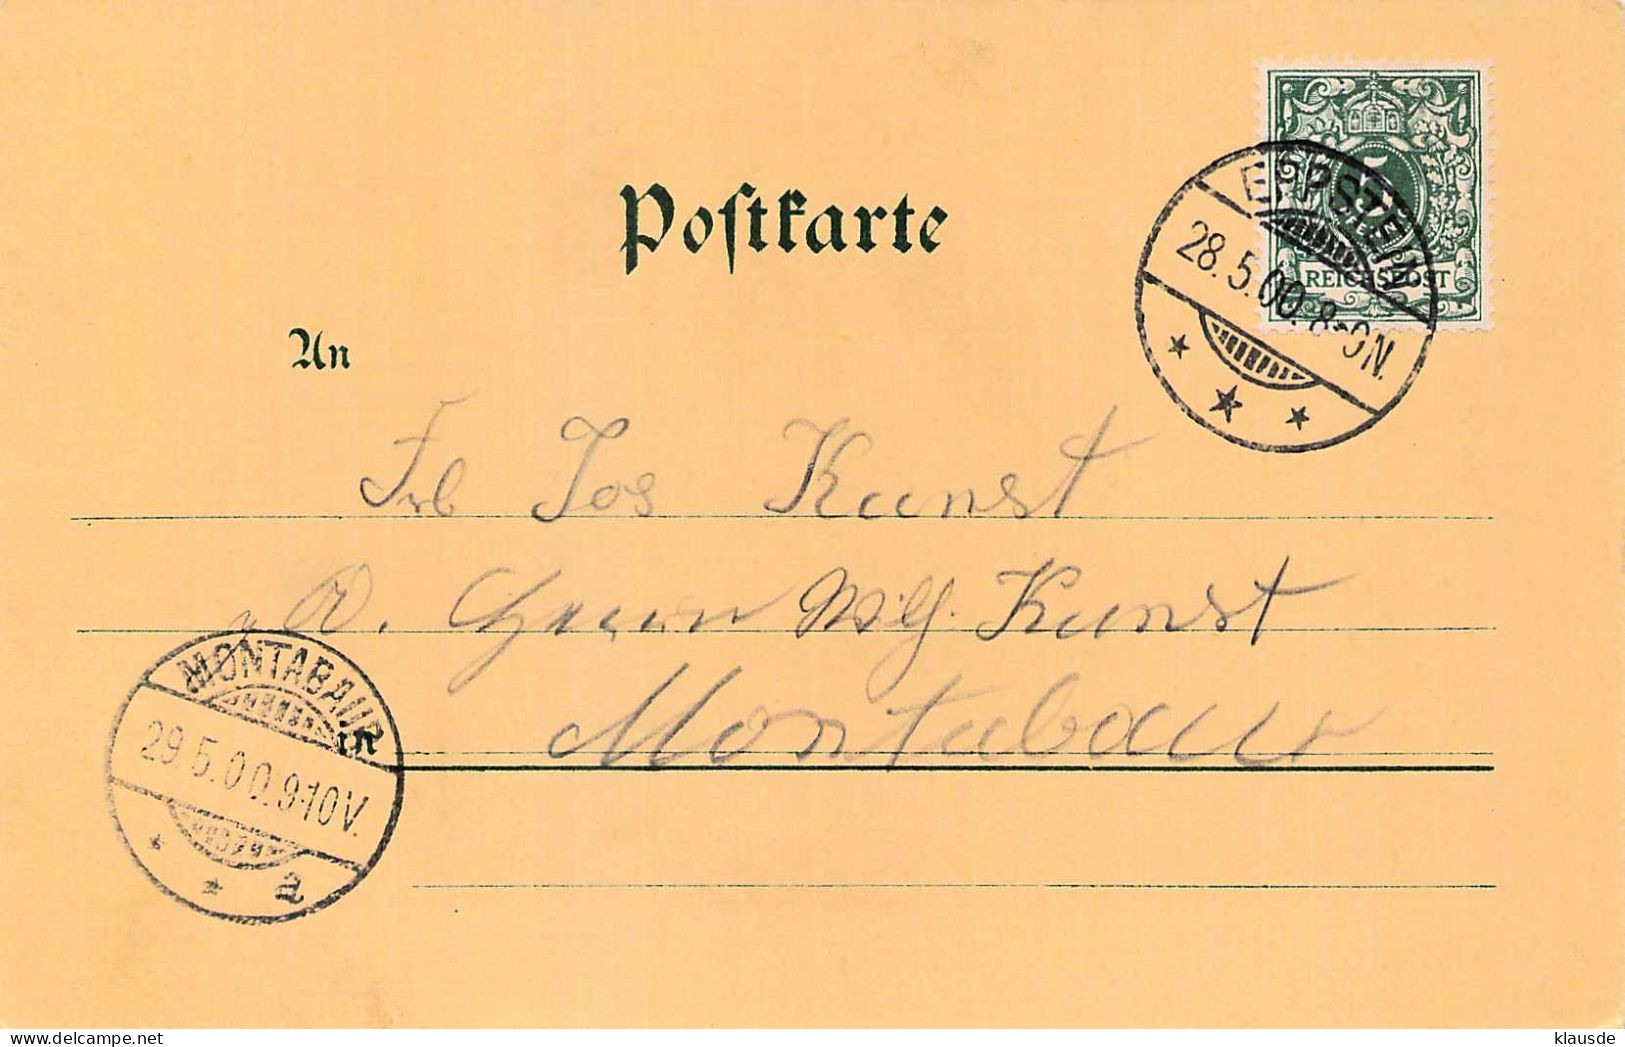 5
REICHSPOST
EPPSTEIN
28.5.00. 8-9N.
Postkarte
An
Frl Jos Kunst
Wilh. Kunst
Montabaur
in
MONTABAUR
29.5.00.9-10V.
a
klausde